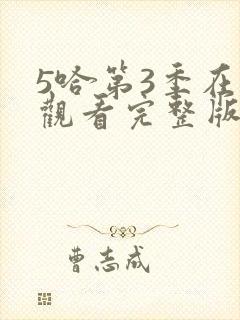 5哈第3季在
觀看完整版
曹志成